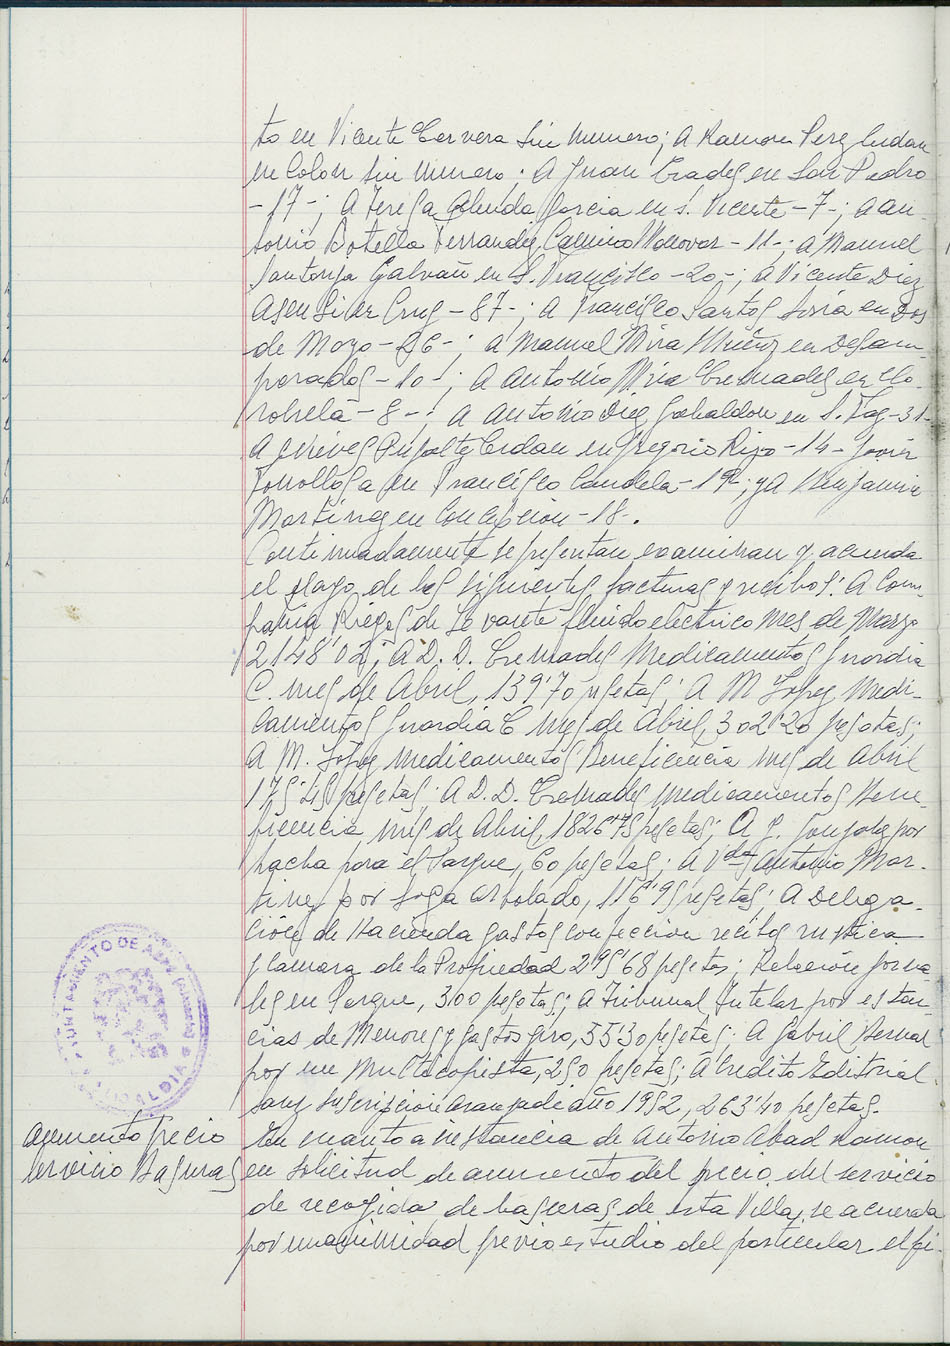 to en Vicente Cervera Sin numero; A Ramon Perez Cerdan
en Colon Sin numero; A Juan Crades en San Pedro
-17-; A Teresa Alenda Garcia en S. Vicente -7-; a An-
tonio Botella Ferrandiz Camino Monovar -11-; a Manuel
Santonja Galvañ en S. Francisco -20-; a Vicente Diez
Asensi en Cruz -87-; a Francisco Santos Soria en Dos
de Mayo -26-; a Manuel Mira Muñoz en Desam-
parados -10-; A Antonio Mira Cremades en
-8-; a Antonio Diez Gabaldon en S. -31-
A Nieves Cerdan en Gregorio Rizo -14- Javier
Torollosa en Francisco Candela -19-; y a Benjamin
Martinez en Concepcion -18-.
Continuadamente se presentan examinan y acuerda
el pago de las siguientes facturas y recibos: A Com-
pañia Riegos de Levante fluido electrico mes de Marzo
2148'02; A D. D. Cremades Medicamentos Guardia
C. mes de Abril, 139'70 pesetas; A M Lopez Medi-
camentos Guardia C mes de Abril, 302'20 pesetas;
A M. Lopez medicamentos Beneficencia mes de Abril
pesetas; A D. D. Cremades medicamentos Bene-
ficencia mes de Abril, 1826'75 pesetas; A J. Gonzalez por
hacha para el Parque, 60 pesetas; a Vda Antonio Mar-
tinez por soga arbolado, 116'95 pesetas; A Delega-
ción de Hacienda gastos confeccion recibos rustica
y Camara de la Propiedad 295'68 pesetas; Relación jorna-
les en Parque, 300 pesetas; a Tribunal Tutelar por estan-
cias de Menores y gastos giro, 55'30 pesetas; A Gabriel Bernal
por un Multicopista, 250 pesetas; A Credito Editorial
Sanz Suscripcion Aranzadi año 1952, 263'40 pesetas.
aumento precio
servicio Basuras
En cuanto a instancia de Antonio Abad Ramon
en solicitud de aumento del precio del servicio
de recogida de basuras de esta Villa, se acuerda
por unanimidad previo estudio del particular el fi-
AYUNTAMIENTO DE ASPE (ALICANTE)
ALCALDIA